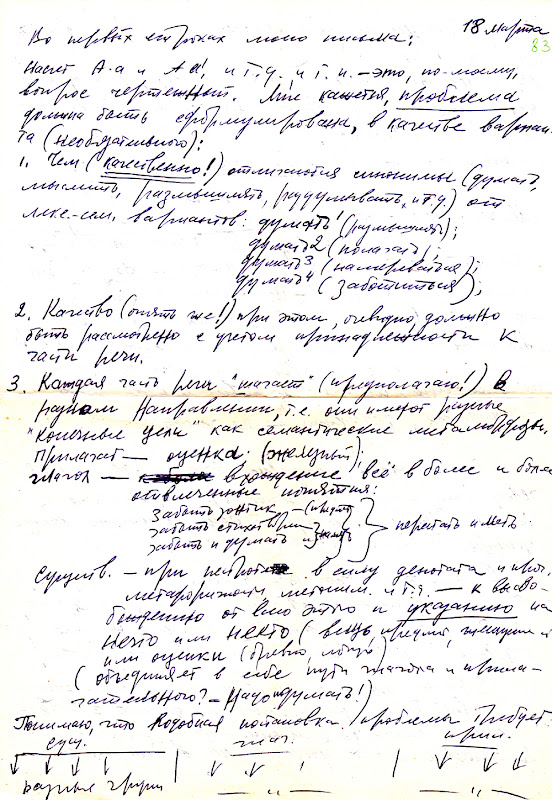 18 марта
83
Во первых строках моего письма:
Насчет А-а и А-а', и т.д. и т.п. – это, по-моему,
вопрос чертежный. Мне кажется, проблема
должна быть сформулирована, в качестве вариан-
та (необязательного):
1. Чем (качественно!) отличаются синонимы (думать,
мыслить, размышлять, раздумывать и т.д.) от
лекс-сем. вариантов: думать1 (размышлять);
думать2 (полагать);
думать3 (намереваться);
думать4 (заботиться);
2. Качество (опять же!) при этом, очевидно, должно
быть рассмотрено с учетом принадлежности к
части речи.
3. Каждая часть речи "шагает" (предполагаю!) в
разном направлении, т.е. они имеют разные
"конечные цели" как семантические метаморфозы.
Прилагат – оценка (железный);
глагол – вхождение всё в более и более
отвлеченные понятия:
забыть зонтик –
забыть стихотворение
забыть и думать
перестать иметь
Существ. – при в силу денотата и
метафоричности, метоним. и т.д. – к высво-
бождению от всего этого и указанию на
нечто или некто (вещь, предмет, женщина и
или оценки (бревно,
(объединяет в себе пути глагола и прила-
гательного? – Надо думать!)
Понимаю, что подобная постановка проблемы требует
сущ. глаг. прил.
разные группы – „ – – „ –